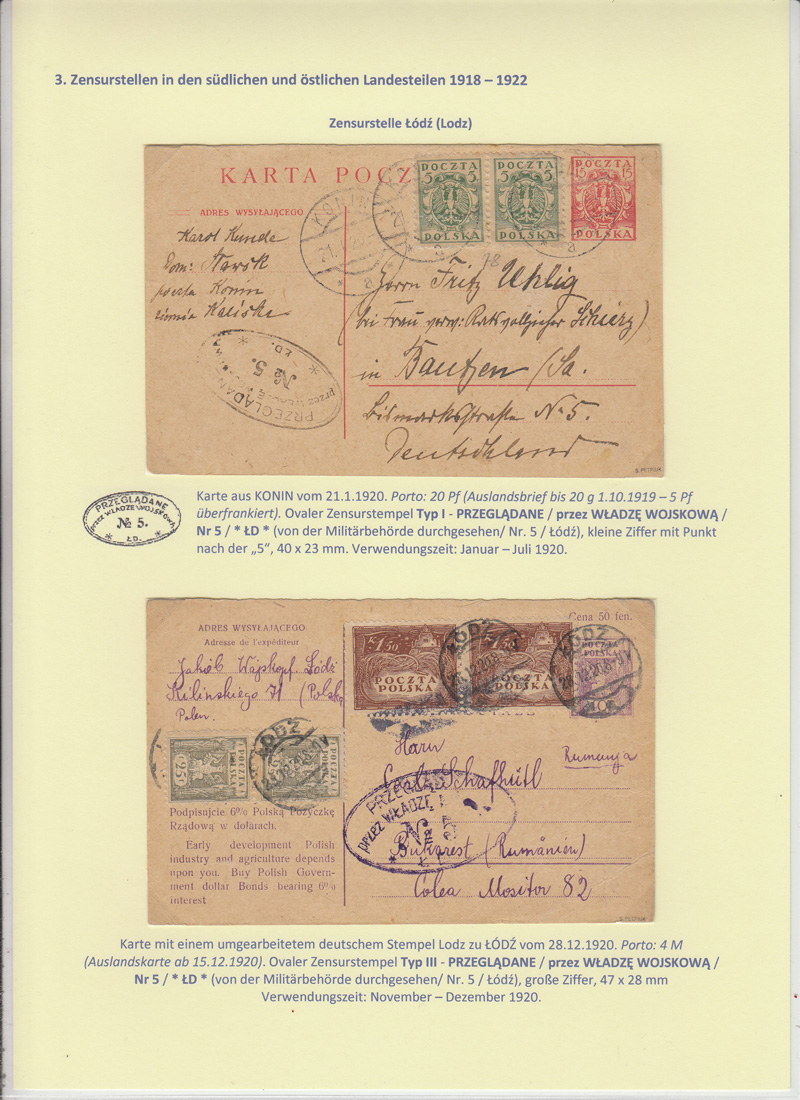 3. Zensurstellen in den südlichen und östlichen Landesteilen 1918 – 1922
Zensurstelle Łódź (Lodz)
KARTA POCZ
ADRES WYSYŁAJĄCEGO
POCZTA
5 5
POLSKA
POCZTA
5 5
POLSKA
POCZTA
15 15
POLSKA
KONIN
Karol Kunde
Dom: Stawsk
poczta Konin
ziemia Kaliska
Herrn Fritz Uhlig
(bei Frau verw: Ratsvollzieher Schierz)
in Bautzen /Sa.
Bismarkstraße No 5.
Deutschland
PRZEGLĄDAN
przez WŁADZĘ
№ 5.
* ŁD. *
S PETRIUK
PRZEGLĄDANE
przez WŁADZE WOJSKOWĄ
№ 5.
* ŁD. *
Karte aus KONIN vom 21.1.1920. Porto: 20 Pf (Auslandsbrief bis 20 g 1.10.1919 – 5 Pf
überfrankiert). Ovaler Zensurstempel Typ I - PRZEGLĄDANE / przez WŁADZĘ WOJSKOWĄ /
Nr 5 / * ŁD * (von der Militärbehörde durchgesehen/ Nr. 5 / Łódź), kleine Ziffer mit Punkt
nach der „5“, 40 x 23 mm. Verwendungszeit: Januar – Juli 1920.
ADRES WYSYŁAJĄCEGO
Adresse de l'expéditeur
Cena 50 fen.
1.50
POCZTA
POLSKA
POCZTA
POLSKA
POCZTA
POLSKA
ŁÓDŹ
ŁÓDŹ
28.12.20.8-9V
Jakób Wajskopf. Łódź
Kilinskiego 71 (Polska
Polen.
25
POCZTA
POLSKA
ŁÓDŹ
Herrn
Carl Schafhütl
Rumunja
Bukarest (Rumänien)
Colea Mositor 82
PRZEGLĄD
przez WŁADZĘ
Podpisujcie 6% Polską Pożyczkę
Rządową w dolarach.
Early development Polish
industry and agriculture depends
upon you. Buy Polish Govern-
ment dollar Bonds bearing 6%
interest
S PETRIUK
Karte mit einem umgearbeitetem deutschem Stempel Lodz zu ŁÓDŹ vom 28.12.1920. Porto: 4 M
(Auslandskarte ab 15.12.1920). Ovaler Zensurstempel Typ III - PRZEGLĄDANE / przez WŁADZĘ WOJSKOWĄ /
Nr 5 / * ŁD * (von der Militärbehörde durchgesehen/ Nr. 5 / Łódź), große Ziffer, 47 x 28 mm
Verwendungszeit: November – Dezember 1920.